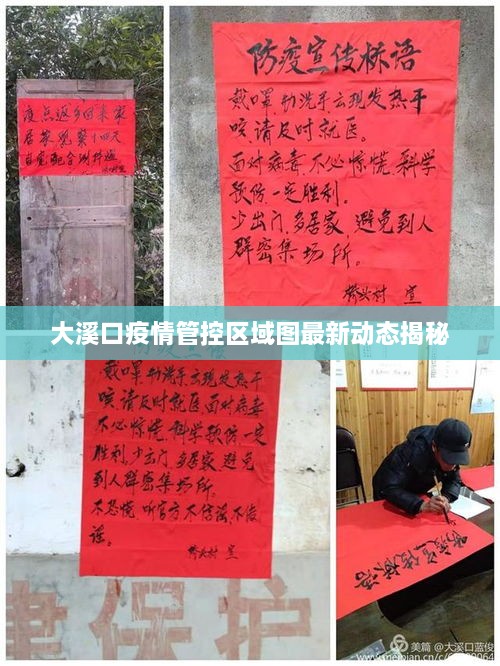 疫点返乡回来家
居家观察十四天
自觉配合测体温
防疫宣传标语
戴口罩,勤洗手,出现发热干
咳,请及时就医。
面对病毒,不必惊慌,科学
预防,一定胜利。
少出门,多居家,避免到人
群密集场所。
桥头村 宣
大溪口疫情管控区域图最新动态揭秘
戴口罩,勤洗手,出现发热干
咳,请及时就医,面对病毒
不必惊慌,科学预防一定
胜利,少出门,多居家,避免
到人群密集场所。
不恐慌,听官方,不信谣,不传
谣。
桥头村 宣
保护
防疫宣传标语
美篇 @大溪口蓝俊